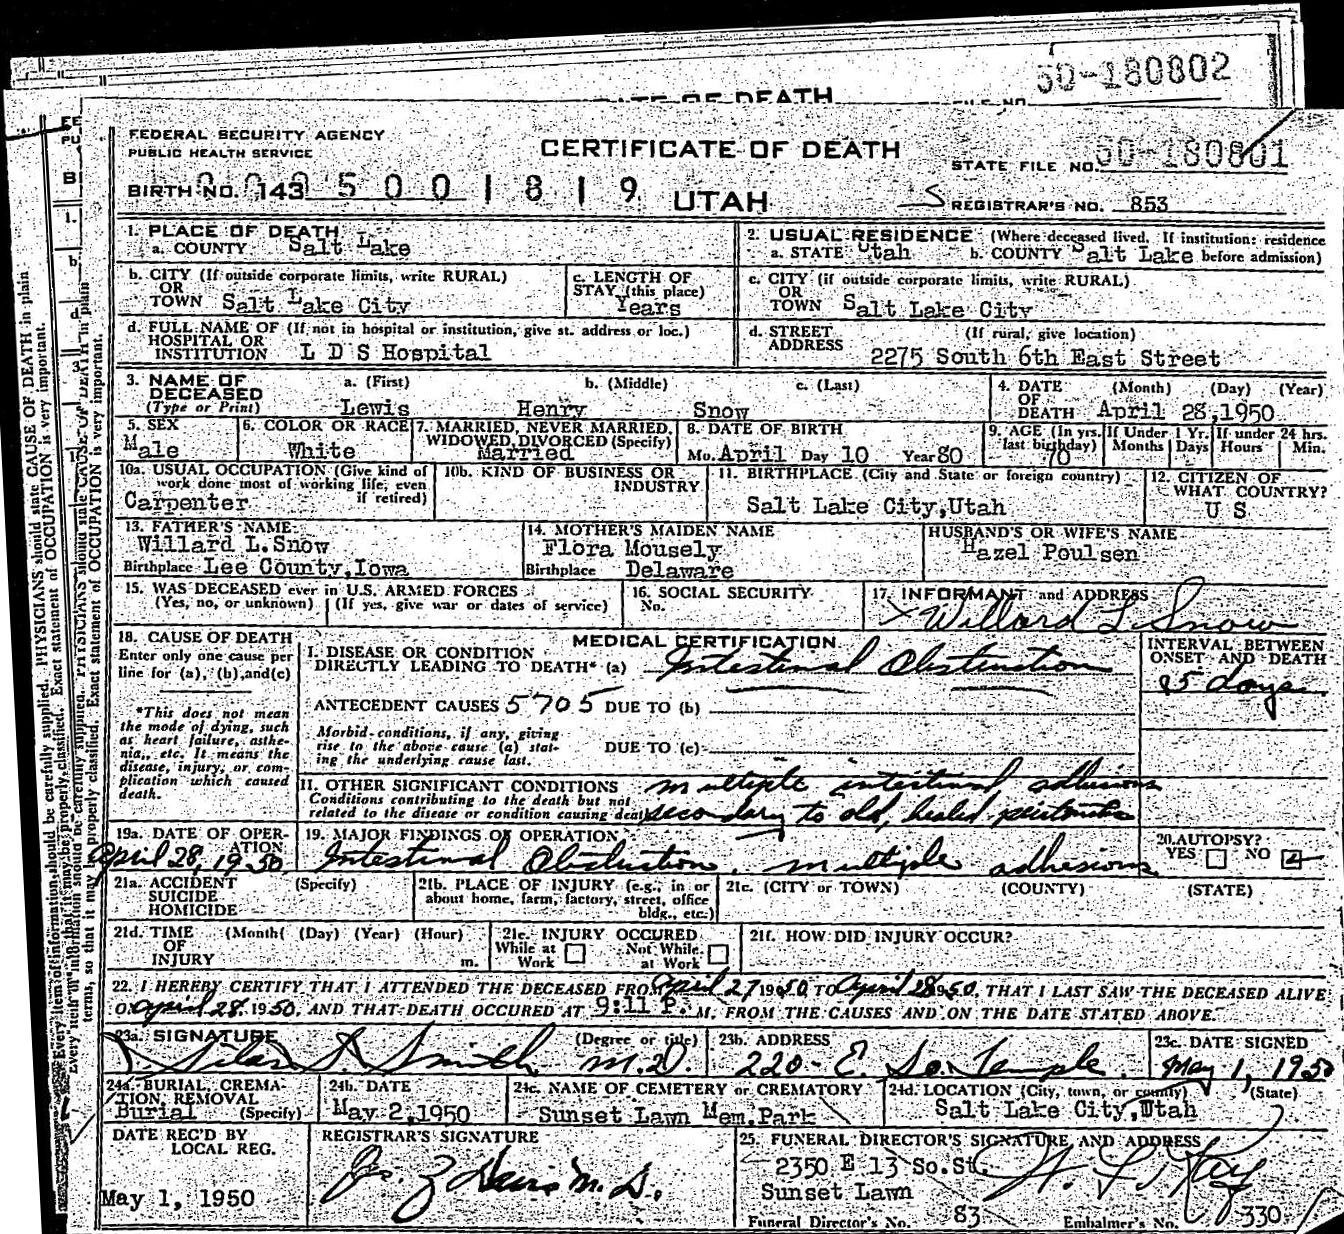 50-180802
OF DEATH
FEDERAL SECURITY AGENCY
PUBLIC HEALTH SERVICE
CERTIFICATE OF DEATH
STATE FILE NO. 50-180801
BIRTH NO. 143 5001819
UTAH
REGISTRAR'S NO. 853
1. PLACE OF DEATH
a. COUNTY Salt Lake
2. USUAL RESIDENCE (Where deceased lived. If institution: residence before admission)
a. STATE Utah b. COUNTY Salt Lake
b. CITY (If outside corporate limits, write RURAL)
OR TOWN Salt Lake City
c. LENGTH OF STAY (this place)
Years
c. CITY (if outside corporate limits, write RURAL)
OR TOWN Salt Lake City
d. FULL NAME OF (If not in hospital or institution, give st. address or loc.)
HOSPITAL OR INSTITUTION L D S Hospital
d. STREET ADDRESS (If rural, give location)
2275 South 6th East Street
3. NAME OF DECEASED (Type or Print)
a. (First) b. (Middle) c. (Last)
Lewis Henry Snow
4. DATE OF DEATH (Month) (Day) (Year)
April 28,1950
5. SEX
Male
6. COLOR OR RACE
White
7. MARRIED, NEVER MARRIED, WIDOWED, DIVORCED (Specify)
Married
8. DATE OF BIRTH
Mo. April Day 10 Year 80
9. AGE (In yrs. last birthday) 70
If Under 1 Yr. Months Days
If under 24 hrs. Hours Min.
10a. USUAL OCCUPATION (Give kind of work done most of working life, even if retired)
Carpenter
10b. KIND OF BUSINESS OR INDUSTRY
11. BIRTHPLACE (City and State or foreign country)
Salt Lake City,Utah
12. CITIZEN OF WHAT COUNTRY?
U S
13. FATHER'S NAME
Willard L.Snow
Birthplace Lee County,Iowa
14. MOTHER'S MAIDEN NAME
Flora Mousely
Birthplace Delaware
HUSBAND'S OR WIFE'S NAME
Hazel Poulsen
15. WAS DECEASED ever in U.S. ARMED FORCES
(Yes, no, or unknown) (If yes, give war or dates of service)
16. SOCIAL SECURITY No.
17. INFORMANT and ADDRESS
X Willard L. Snow
18. CAUSE OF DEATH
Enter only one cause per line for (a), (b), and (c)
*This does not mean the mode of dying, such as heart failure, asthenia, etc. It means the disease, injury, or complication which caused death.
MEDICAL CERTIFICATION
I. DISEASE OR CONDITION
DIRECTLY LEADING TO DEATH* (a) Intestinal Obstruction
INTERVAL BETWEEN ONSET AND DEATH
days
ANTECEDENT CAUSES 5705 DUE TO (b)
Morbid conditions, if any, giving rise to the above cause (a) stating the underlying cause last.
DUE TO (c)
II. OTHER SIGNIFICANT CONDITIONS
Conditions contributing to the death but not related to the disease or condition causing death
multiple intestinal adhesions
secondary to old, healed peritonitis
19a. DATE OF OPERATION
April 28, 1950
19. MAJOR FINDINGS OF OPERATION
Intestinal Obstruction, multiple adhesions
20. AUTOPSY?
YES NO
21a. ACCIDENT SUICIDE HOMICIDE (Specify)
21b. PLACE OF INJURY (e.g., in or about home, farm, factory, street, office bldg., etc.)
21c. (CITY or TOWN) (COUNTY) (STATE)
21d. TIME OF INJURY (Month( (Day) (Year) (Hour) m.
21e. INJURY OCCURED
While at Work Not While at Work
21f. HOW DID INJURY OCCUR?
22. I HEREBY CERTIFY THAT I ATTENDED THE DECEASED FROM April 27 1950 TO April 28 1950, THAT I LAST SAW THE DECEASED ALIVE
ON April 28, 1950, AND THAT DEATH OCCURED AT 9:11 P. M. FROM THE CAUSES AND ON THE DATE STATED ABOVE.
23a. SIGNATURE (Degree or title)
Silas S. Smith M.D.
23b. ADDRESS
220 - E. So. Temple
23c. DATE SIGNED
May 1, 1950
24a. BURIAL, CREMATION, REMOVAL (Specify)
Burial
24b. DATE
May 2,1950
24c. NAME OF CEMETERY or CREMATORY
Sunset Lawn Mem.Park
24d. LOCATION (City, town, or county) (State)
Salt Lake City,Utah
DATE REC'D BY LOCAL REG.
May 1, 1950
REGISTRAR'S SIGNATURE
25. FUNERAL DIRECTOR'S SIGNATURE AND ADDRESS
2350 E 13 So.St.
Sunset Lawn
Funeral Director's No. 83 Embalmer's No. 330